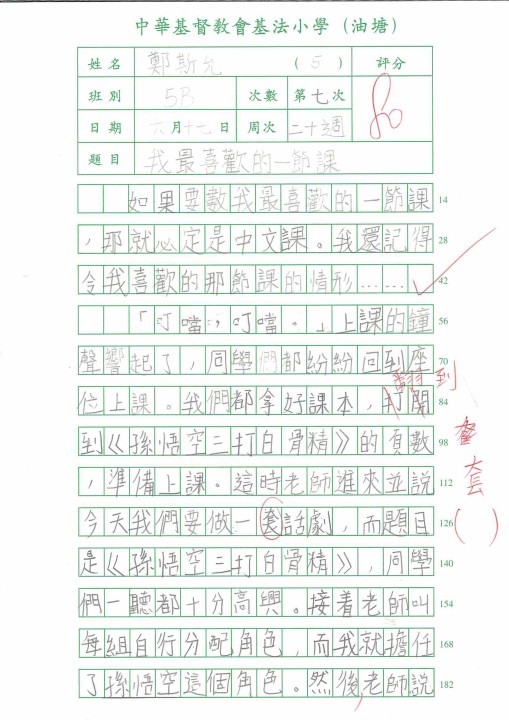 中華基督教會基法小學（油塘）
姓名 鄭斯允 (5) 評分
班別 5B 次數 第七次 80
日期 六月十七日 周次 二十三週
題目 我最喜歡的一節課
如果要數我最喜歡的一節課 14
，那就必定是中文課。我還記得 28
令我喜歡的那節課的情形…… 42
「叮噹，叮噹。」上課的鐘 56
聲響起了，同學們都紛紛回到座 70
翻到
位上課。我們都拿好課本，打開 84
到《孫悟空三打白骨精》的頁數 98
套
，準備上課。這時老師進來並說 112
今天我們要做一套話劇，而題目 126 ( )
是《孫悟空三打白骨精》，同學 140
們一聽都十分高興。接着老師叫 154
每組自行分配角色，而我就擔任 168
了孫悟空這個角色。然後，老師說 182